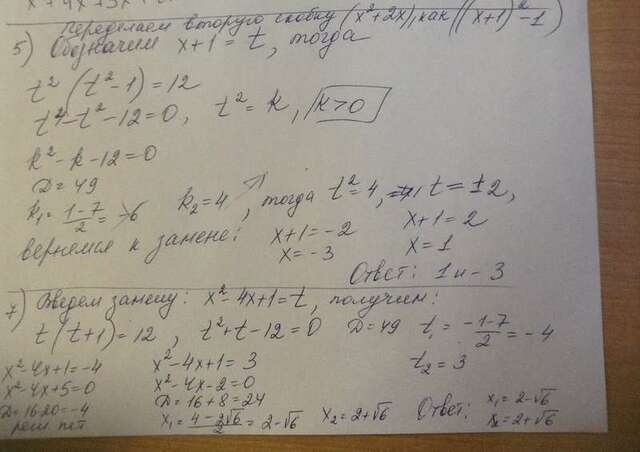 Переделаем вторую скобку (x²+2x), как ((x+1)²-1)
5) Обозначим x+1=t, тогда
t²(t²-1)=12
t⁴-t²-12=0, t²=k, k>0
k²-k-12=0
D=49
k₁=(1-7)/2= k₂=4, тогда t²=4, t=±2,
вернемся к замене: x+1=-2 x+1=2
x=-3 x=1
Ответ: 1 и -3
7) Введем замену: x²-4x+1=t, получим:
t(t+1)=12, t²+t-12=0 D=49 t₁=(-1-7)/2=-4
t₂=3
x²-4x+1=-4 x²-4x+1=3
x²-4x+5=0 x²-4x-2=0
D=16-20=-4 D=16+8=24
реш. нет x₁=(4-2√6)/2=2-√6 x₂=2+√6 Ответ: x₁=2-√6
x₂=2+√6